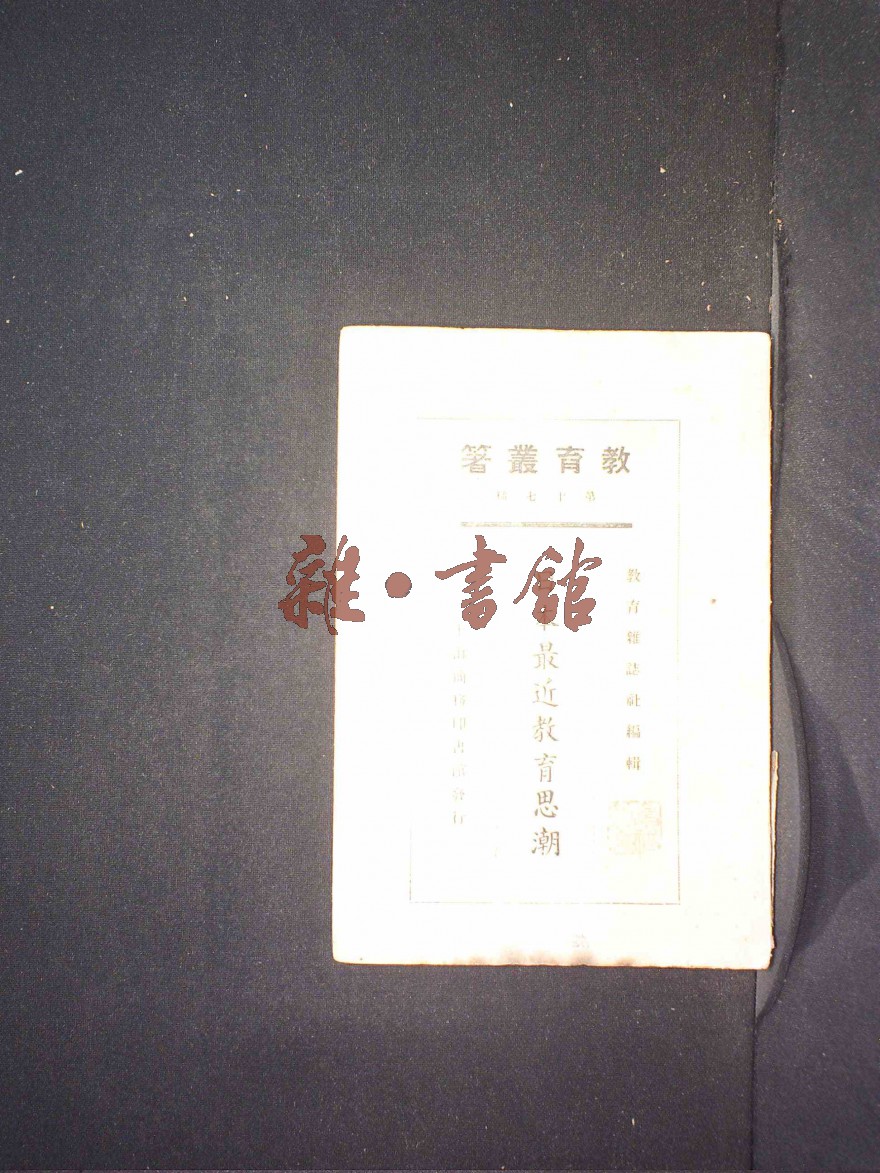 教育叢著
第十七種
教育雜誌社編輯
最近教育思潮
商務印書館發行
雜·書館